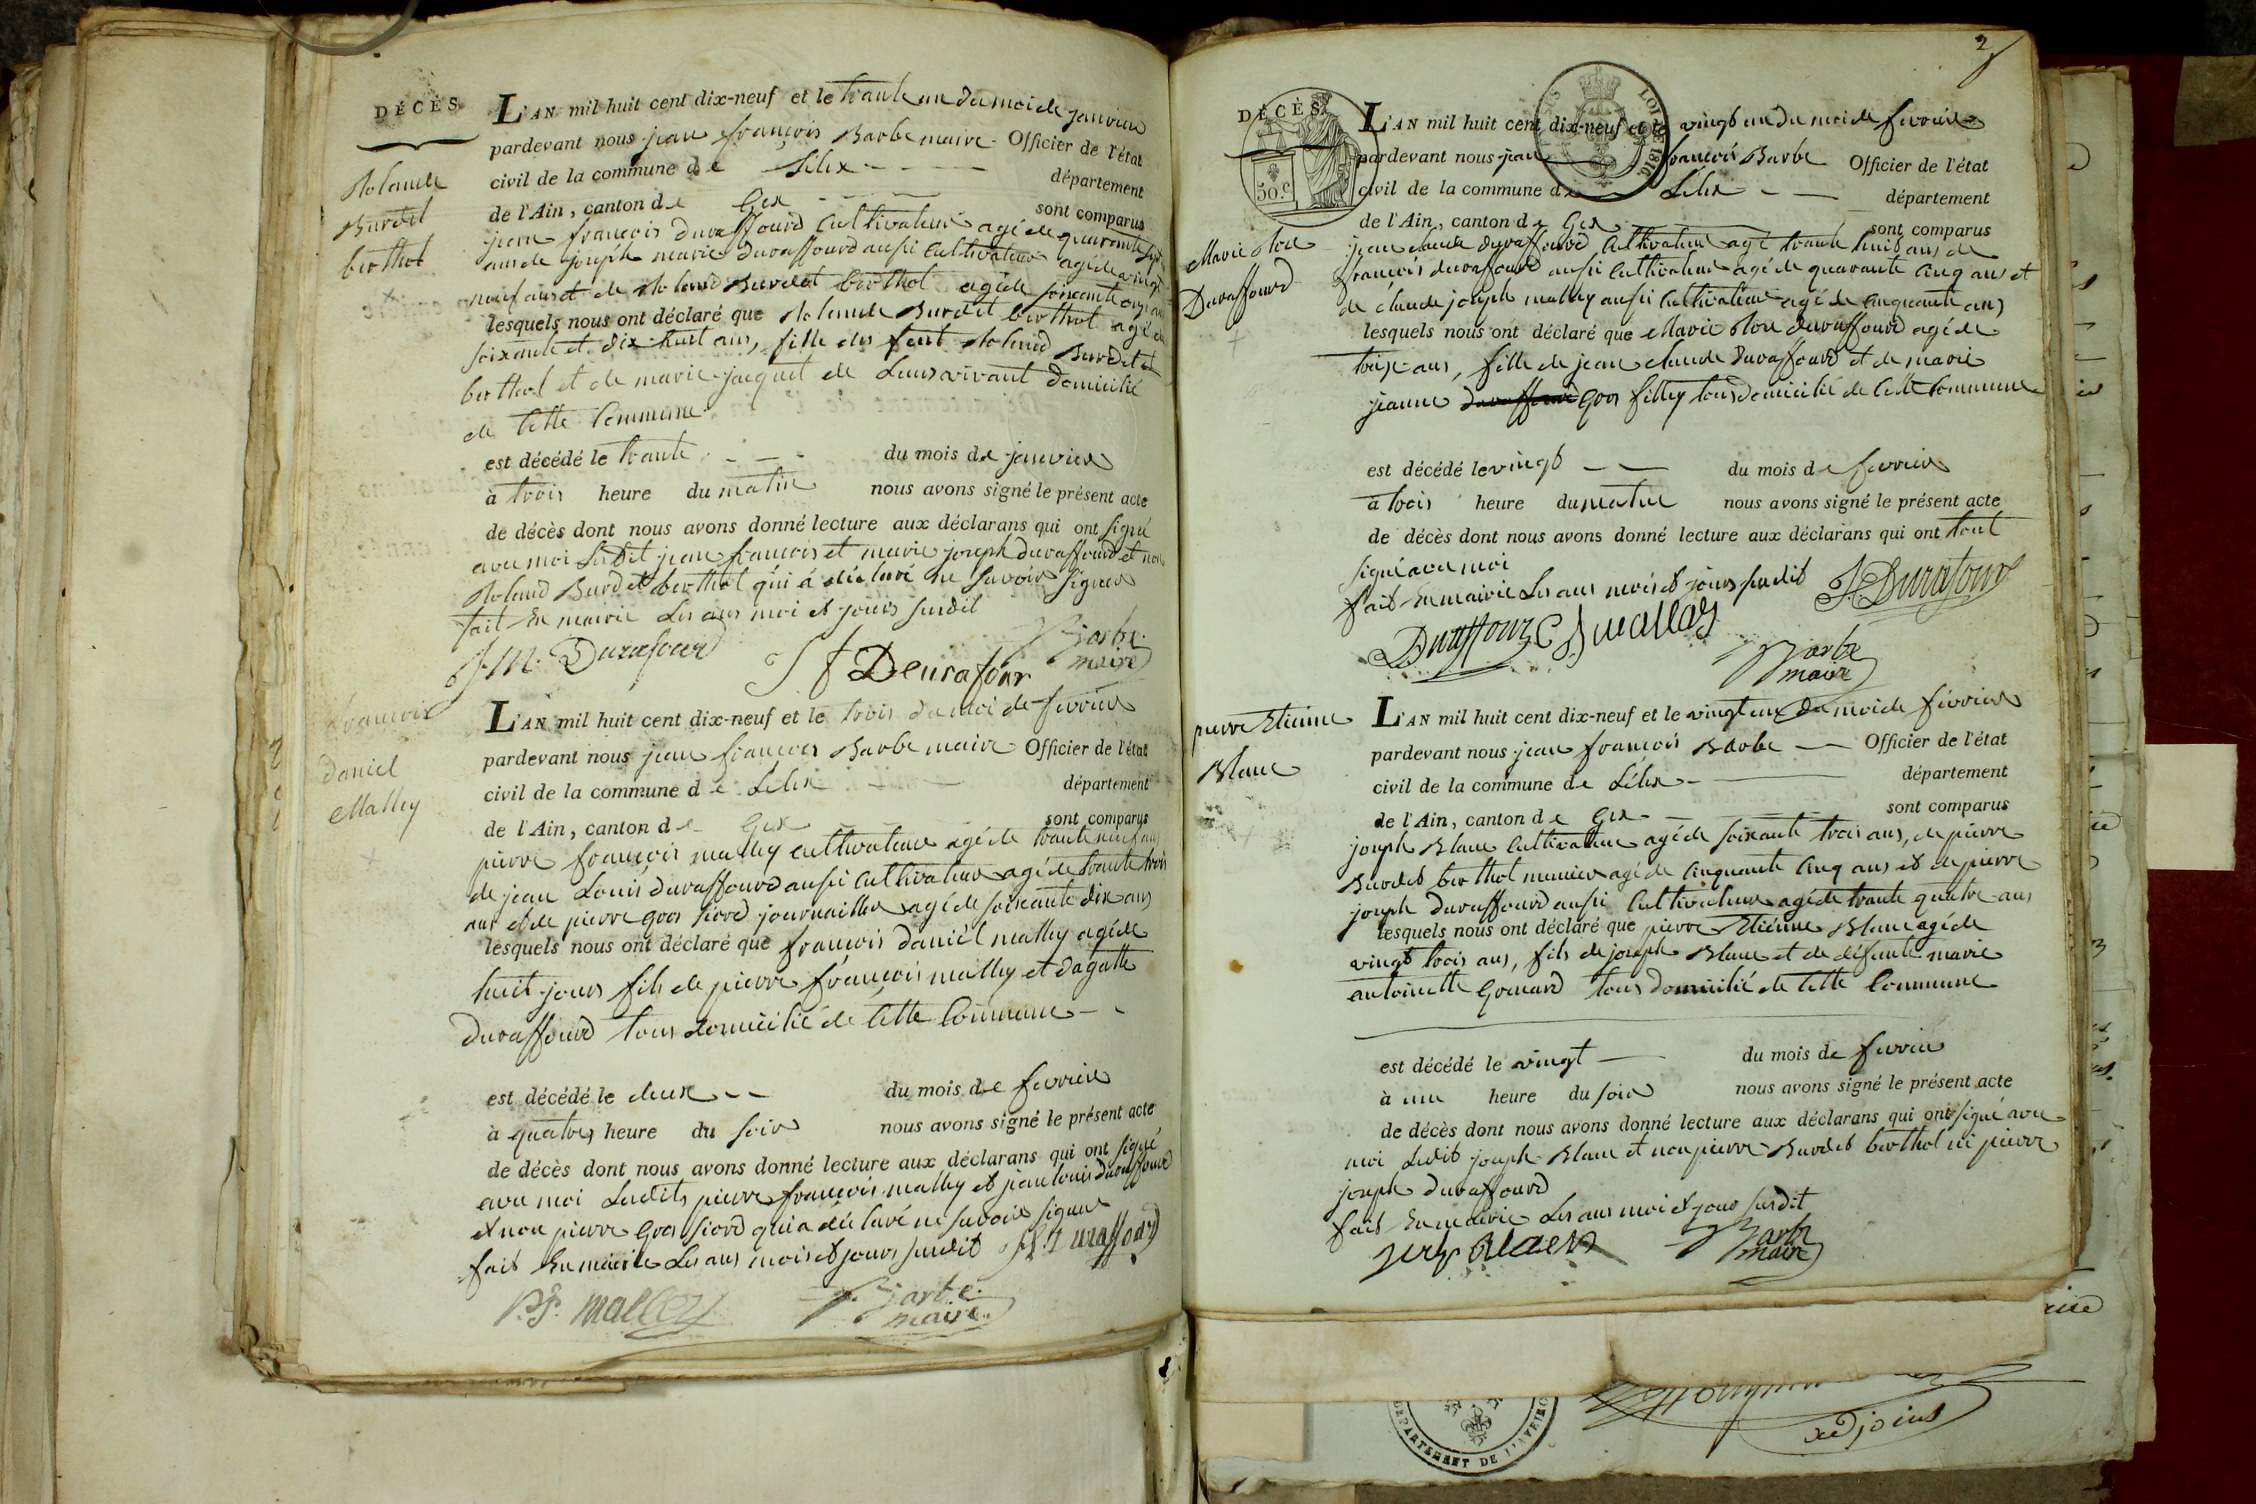 DÉCÈS
Rolande
Burdet
berthet
L'AN mil huit cent dix-neuf et le trante un du moi de janvier
pardevant nous jean françois Barbe maire Officier de l'état
civil de la commune de Lélex département
de l'Ain, canton de Gex sont comparus
jean françois duraffourd Cultivateur agé de quarante sept
ans de joseph marie duraffourd aussi Cultivateur agé de vingt
neuf ans et de Roland Burdet berthet agé de soixante onze ans
lesquels nous ont déclaré que Rolande Burdet berthet agé de
soixante et dix huit ans, fille des feut Roland Burdet
berthet et de marie jacquet de Leurs vivant domicilié
de Cette Commune
est décédé le trante du mois de janvier
à trois heure du matin nous avons signé le présent acte
de décès dont nous avons donné lecture aux déclarans qui ont signé
avec moi Ledit jean françois et marie joseph duraffourd et non
Roland Burdet berthet qui á déclaré ne savoir signer
fait En mairie Les ans moi et jours susdit
J.M. Durafourd
J f Deurafour
Barbe
maire
françois
daniel
Mathey
L'AN mil huit cent dix-neuf et le trois du moi de fevrier
pardevant nous jean françois Barbe maire Officier de l'état
civil de la commune de Lélex département
de l'Ain, canton de Gex sont comparus
pierre françois mathey cultivateur agé de trante neuf ans
de jean Louis duraffourd aussi Cultivateur agé de trante trois
ans et de pierre gros fiord journaillier agé de soixante dix ans
lesquels nous ont déclaré que françois daniel mathey agé de
huit jours fils de pierre françois mathey et dagatte
duraffourd tous domicilié de Cette Commune
est décédé le deux du mois de fevrier
à quatres heure du soir nous avons signé le présent acte
de décès dont nous avons donné lecture aux déclarans qui ont signé
avec moi Lesdits pierre françois mathey et jean louis duraffourd
et non pierre gros fiord qui a déclaré ne savoir signer
fait En mairie Les ans mois et jours susdit J L Duraffourd
P.F. Malley
Barbe
maire
2
DÉCÈS
50.c
LOI DE 1816
Marie Rose
Duraffourd
L'AN mil huit cent dix-neuf et le vingt un du moi de fevrier
pardevant nous jean françois Barbe Officier de l'état
civil de la commune de Lélex département
de l'Ain, canton de Gex sont comparus
jean claude duraffourd Cultivateur agé trante huit ans de
françois duraffourd aussi Cultivateur agé de quarante Cinq ans et
de claude joseph mathey aussi Cultivateur agé de Cinquante ans
lesquels nous ont déclaré que Marie Rose duraffourd agé de
treize ans, fille de jean claude duraffourd et de marie
jeanne duraffourd gros filley tous domicilié de Cette Commune
est décédé le vingt du mois de fevrier
à trois heure du matin nous avons signé le présent acte
de décès dont nous avons donné lecture aux déclarans qui ont tout
signé avec moi
fait En mairie Les ans mois et jours susdit F Durafour
Duraffour C J malley
Barbe
maire
pierre Etienne
Blanc
L'AN mil huit cent dix-neuf et le vingt un du moi de février
pardevant nous jean françois Barbe Officier de l'état
civil de la commune de Lélex département
de l'Ain, canton de Gex sont comparus
joseph Blanc Cultivateur agé de soixante trois ans, de pierre
Burdet berthet meunier agé de Cinquante Cinq ans et de pierre
joseph duraffourd aussi Cultivateur agé de trante quatre ans
lesquels nous ont déclaré que pierre Etienne Blanc agé de
vingt trois ans, fils de joseph Blanc et de défunte marie
antoinette gonard tous domicilié de Cette Commune
est décédé le vingt du mois de fevrier
à une heure du soir nous avons signé le présent acte
de décès dont nous avons donné lecture aux déclarans qui ont signé avec
moi Ledit joseph Blanc et non pierre Burdet berthet ni pierre
joseph duraffourd
fait En mairie Les ans moi et jour susdit
Barbe
maire
adjoint
DÉPARTEMENT DE L'AVEYRON